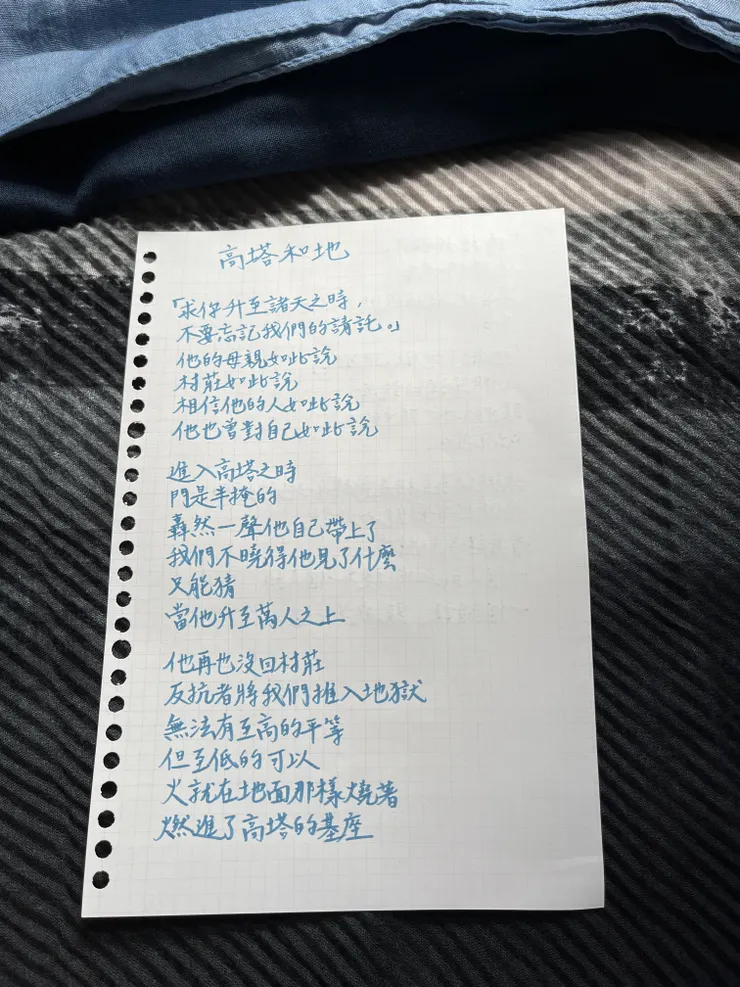 高塔和地
「求你升至諸天之時，
不要忘記我們的請託。」
他的母親如此說
村莊如此說
相信他的人如此說
他也曾對自己如此說
進入高塔之時
門是半掩的
轟然一聲他自己帶上了
我們不曉得他見了什麼
只能猜
當他升至萬人之上
他再也沒回村莊
反抗者將我們推入地獄
無法有至高的平等
但至低的可以
火就在地面那樣燒著
燃進了高塔的基座